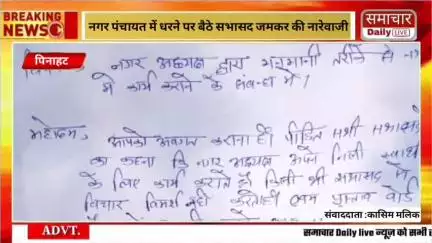 BREAKING NEWS
नगर पंचायत में धरने पर बैठे सभासद जमकर की नारेवाजी
समाचार
Daily LIVE
पिनाहट
नगर अध्यक्ष द्वारा मनमानी तरीके से
में कार्य कराने के संबन्ध में।
महोदय,
आपको अवगत कराना है। पीड़ित सभी सभासदों
का कहना कि नगर अध्यक्ष अपने निजी स्वार्थ
के लिए कार्य कराते हैं किसी भी सभासद से
विचार विमर्श नहीं करते
संवाददाता :कासिम मलिक
ADVT.
समाचार Daily live न्यूज़ को सभी